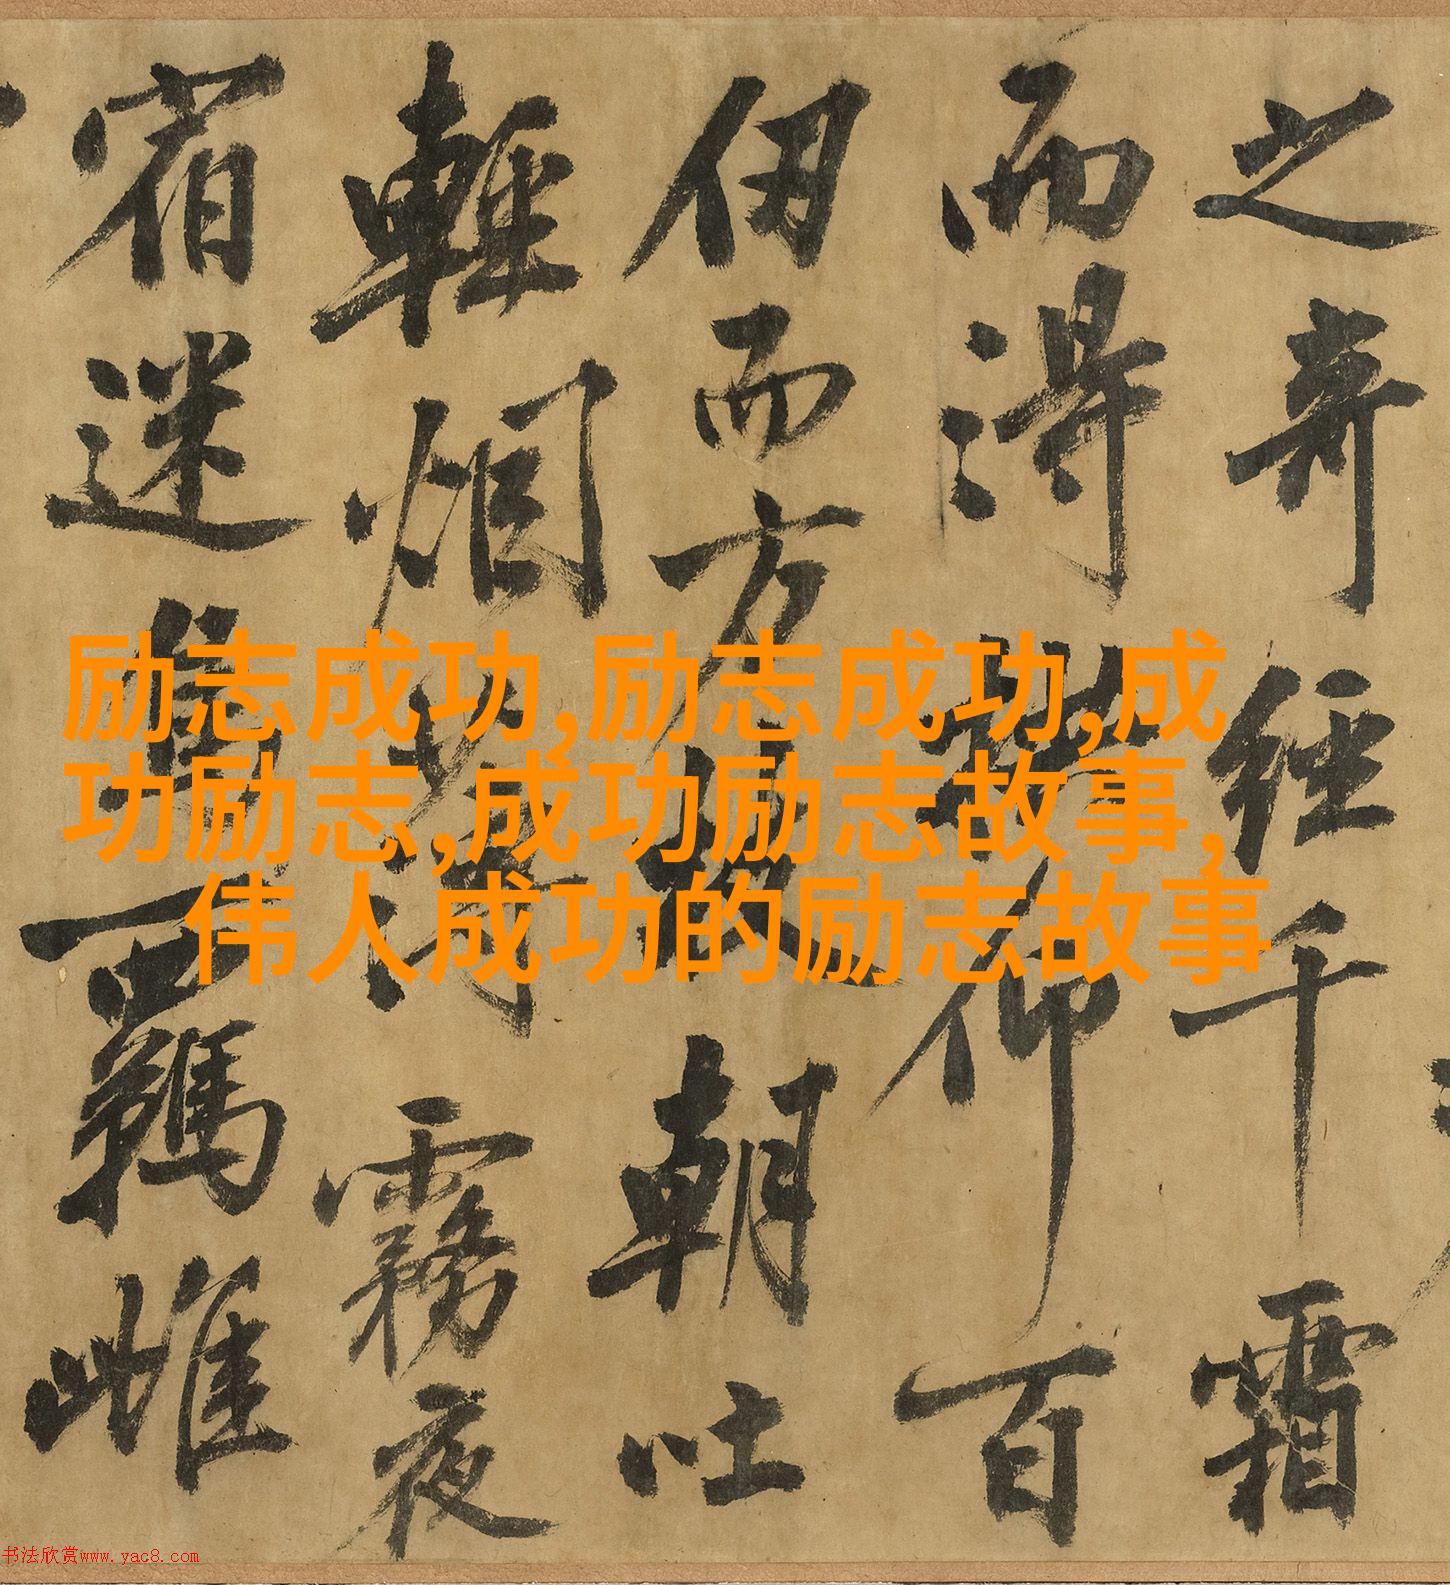 之奇經千霜
而得仰百
仞而方朝吐
輕烟薄霧夜
宿迷鳥羈雌
励志成功,励志成功,成
功励志,成功励志故事,
伟人成功的励志故事
书法欣赏www.yac8.com